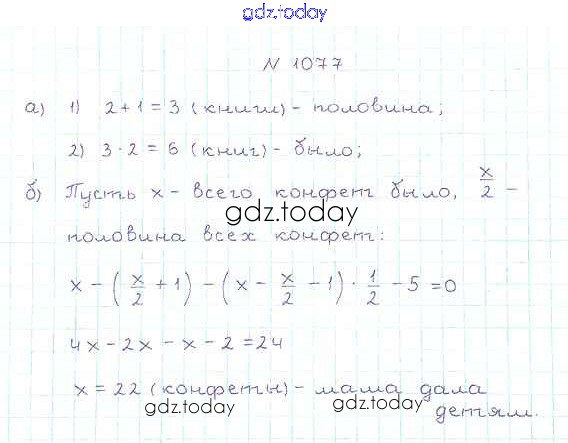 gdz.today
N 1077
а) 1) 2 + 1 = 3 (книги) - половина;
2) 3 · 2 = 6 (книг) - было;
б) Пусть x - всего конфет было, x/2 -
gdz.today
половина всех конфет:
x - (x/2 + 1) - (x - x/2 - 1) · 1/2 - 5 = 0
4x - 2x - x - 2 = 24
x = 22 (конфеты) - мама дала
gdz.today gdz.today
детям.